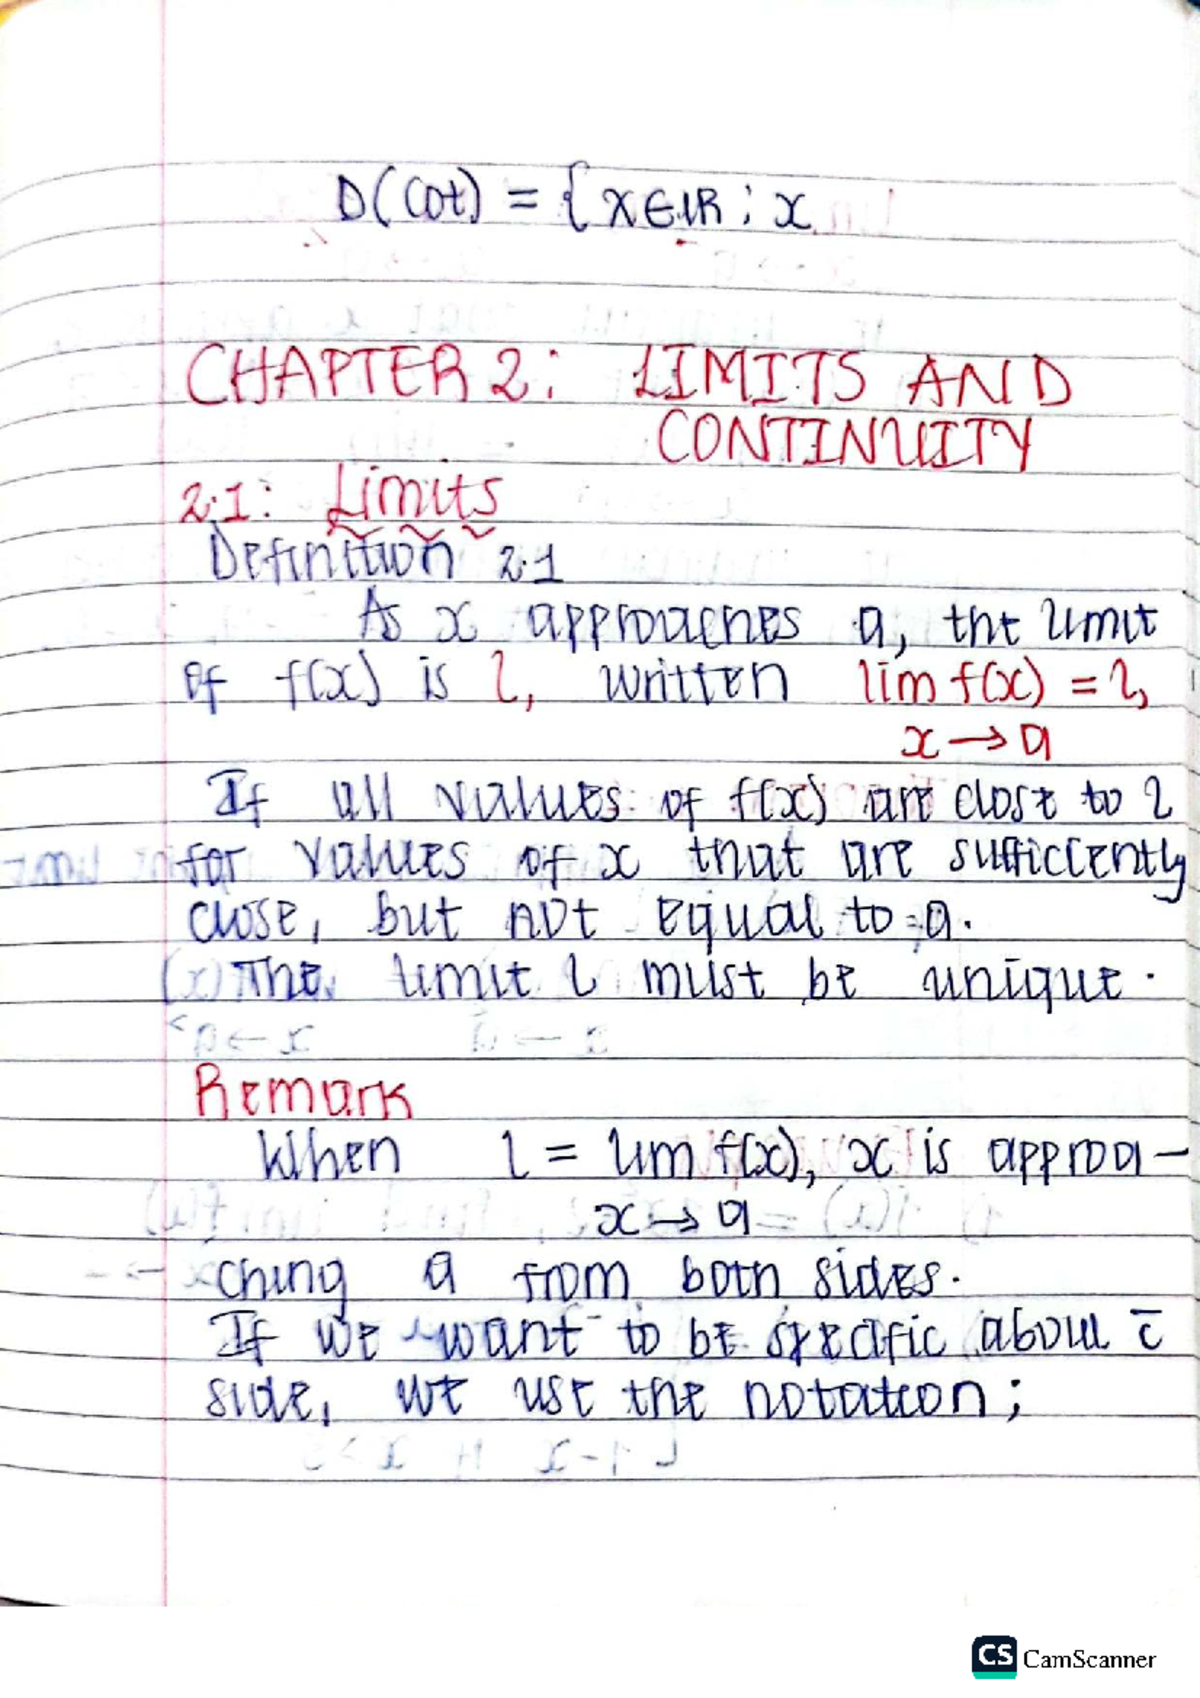 D(Cot) = { x∈IR ; x
CHAPTER 2: LIMITS AND
CONTINUITY
2.1: Limits
Definition 2.1
As x approaches a, the limit
of f(x) is l, written lim f(x) = l,
x → a
If all values of f(x) are close to l
for values of x that are sufficiently
close, but not equal to a.
The limit l must be unique.
Remark
When l = lim f(x), x is approa-
x → a
ching a from both sides.
If we want to be specific about c̄
side, we use the notation;
CS CamScanner